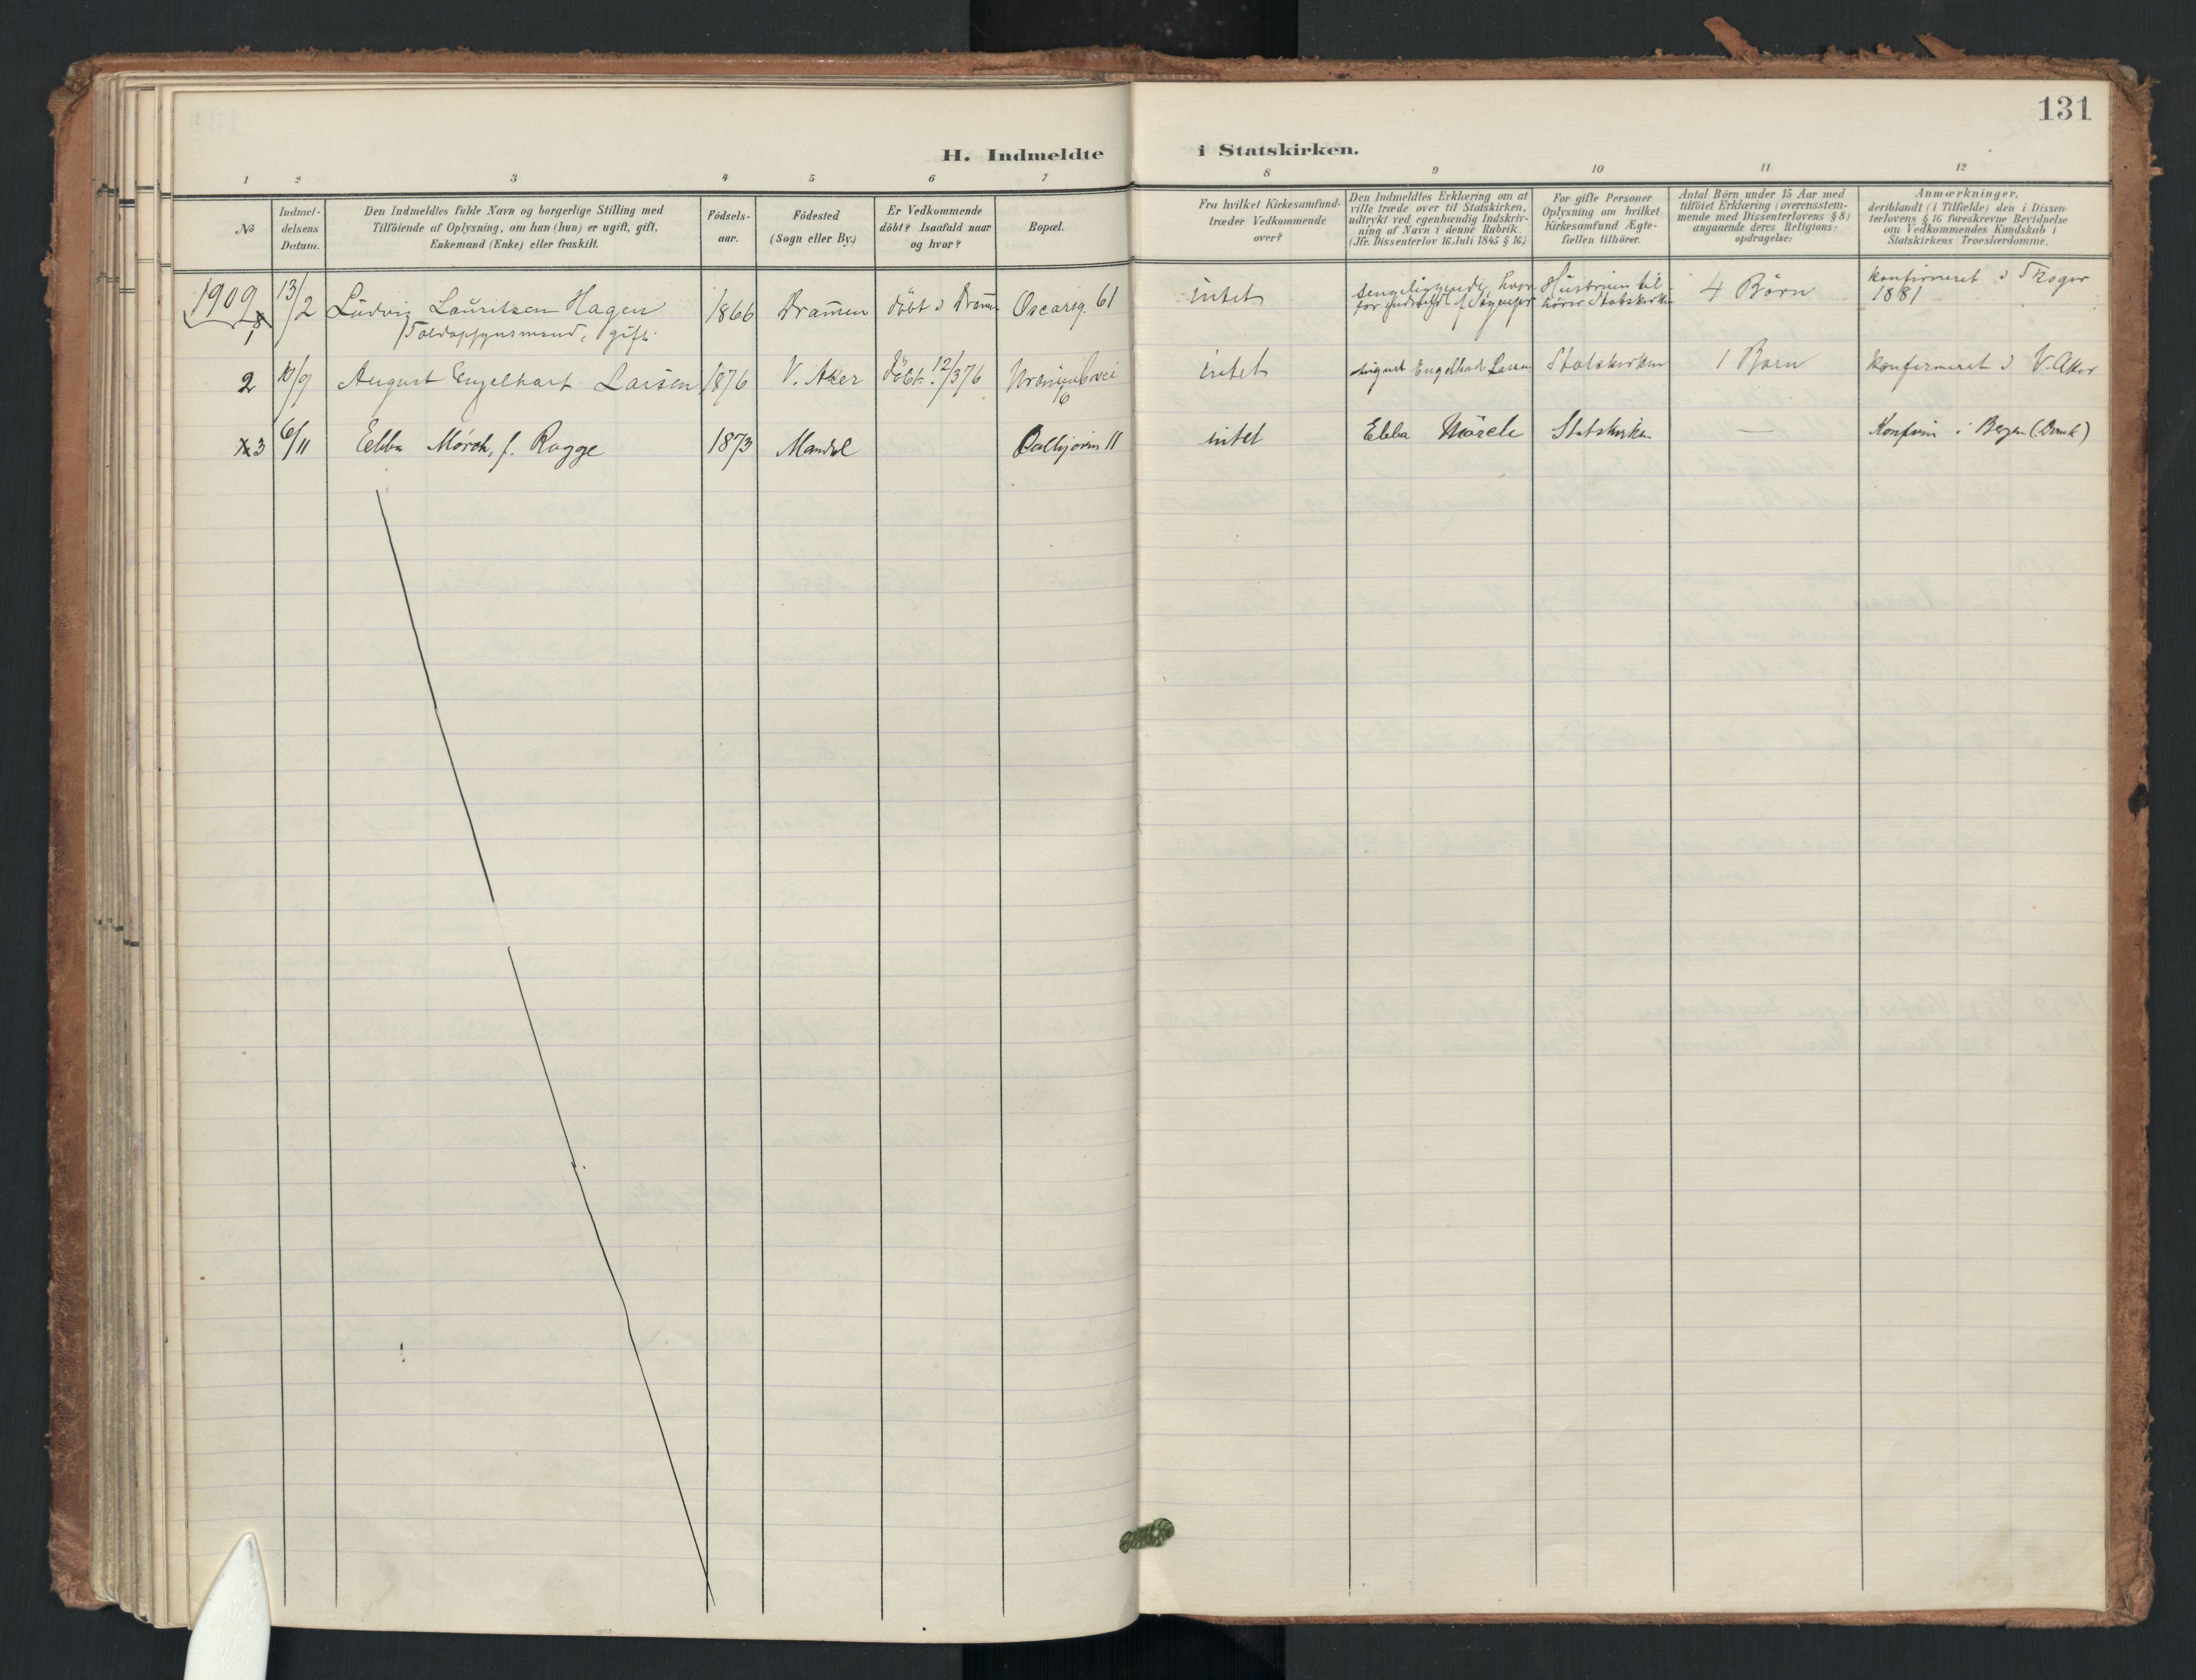 131
H. Indmeldte i Statskirken.
1 2 3 4 5 6 7 8 9 10 11 12
№
Indmel-
delsens
Datum.
Den Indmeldtes fulde Navn og borgerlige Stilling med
Tilföiende af Oplysning, om han (hun) er ugift, gift,
Enkemand (Enke) eller fraskilt.
Födsels-
aar.
Födested
(Sogn eller By.)
Er Vedkommende
döbt? Isaafald naar
og hvor?
Bopæl.
Fra hvilket Kirkesamfund
træder Vedkommende
over?
Den Indmeldtes Erklæring om at
ville træde over til Statskirken,
udtrykt ved egenhændig Indskriv-
ning af Navn i denne Rubrik.
(Jfr. Dissenterlov 16. Juli 1845 § 16.)
For gifte Personer
Oplysning om hvilket
Kirkesamfund Ægte-
fællen tilhörer.
Antal Börn under 15 Aar med
tilföiet Erklæring (overensstem-
mende med Dissenterlovens § 8)
angaaende deres Religions-
opdragelse:
Anmærkninger,
deriblandt (i Tilfælde) den i Dissen-
terlovens § 16 foreskrevne Bevidnelse
om Vedkommendes Kundskab i
Statskirkens Troeslærdomme.
1909
1 13/2 Ludvig Lauritzen Hagen 1866 Dramen döbt i Dramn Oscarsg. 61 intet Sengeliggende, hvor- Hustruen til- 4 Börn konfirmeret i Skoger
Toldopsynsmand, gift. for indmeldt hörer Statskirken 1881
2 10/9 August Engelhart Larsen 1876 V. Aker döbt 12/3 76 Uranienbvei intet August Engelhart Larsen Statskirken 1 Barn Konfirmeret i V. Aker
6
3 6/11 Ebba Mörch, f. Rogge 1873 Mandal 11 intet Ebba Mörch Statskirken — Konfirm i Bergen (Domk)